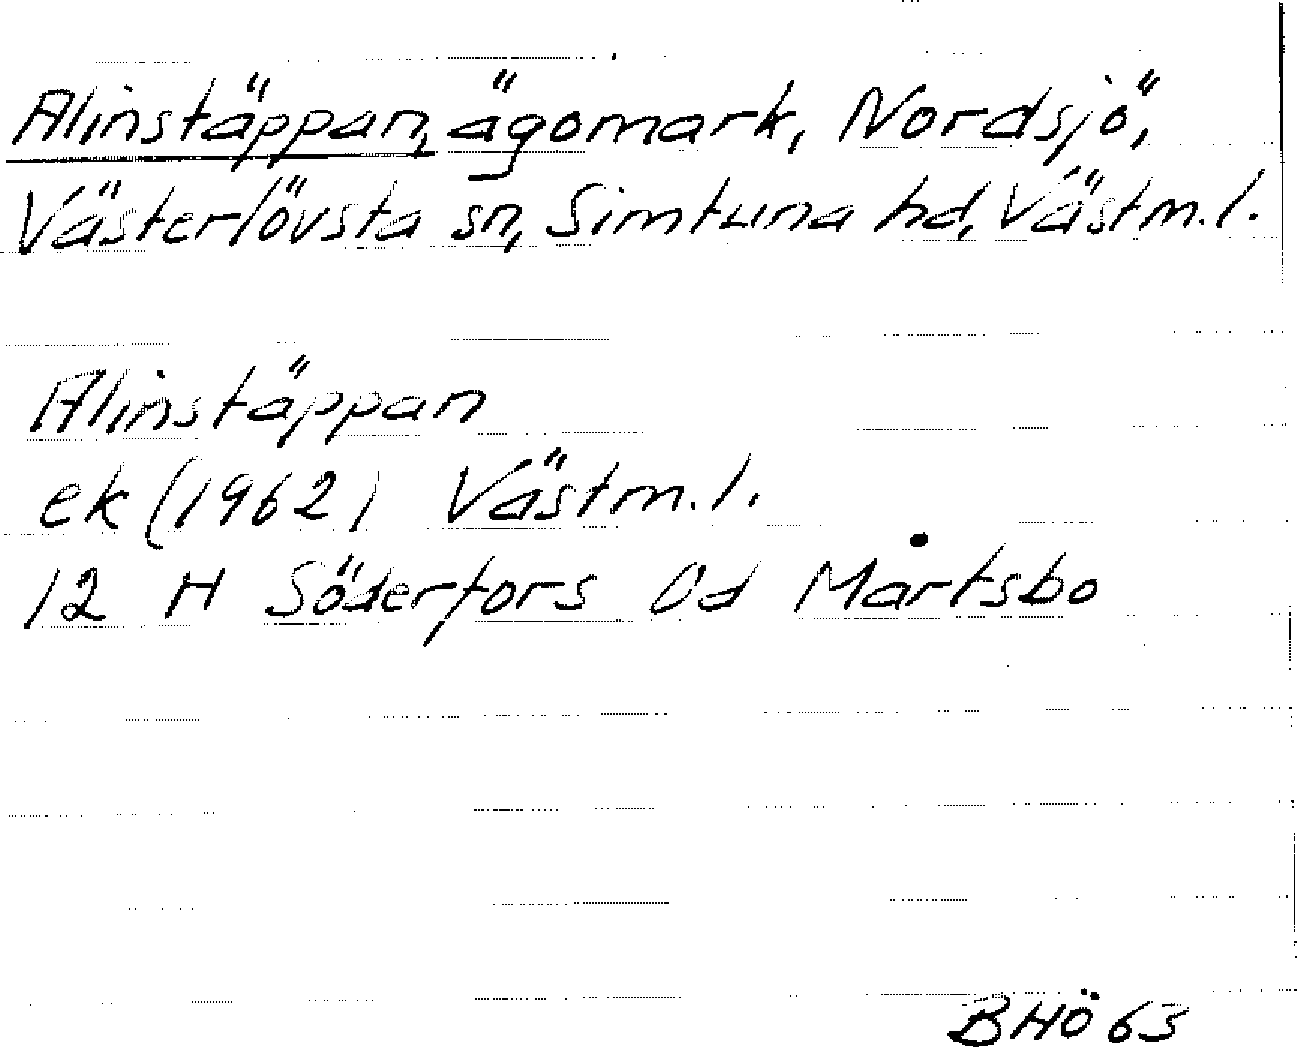 Alinstäppan, ägomark, Nordsjö,
Västerlövsta sn, Simtuna hd, Västm.l.
Alinstäppan
ek (1962) Västm.l.
12 H Söderfors 0d Mårtsbo
BHÖ 63